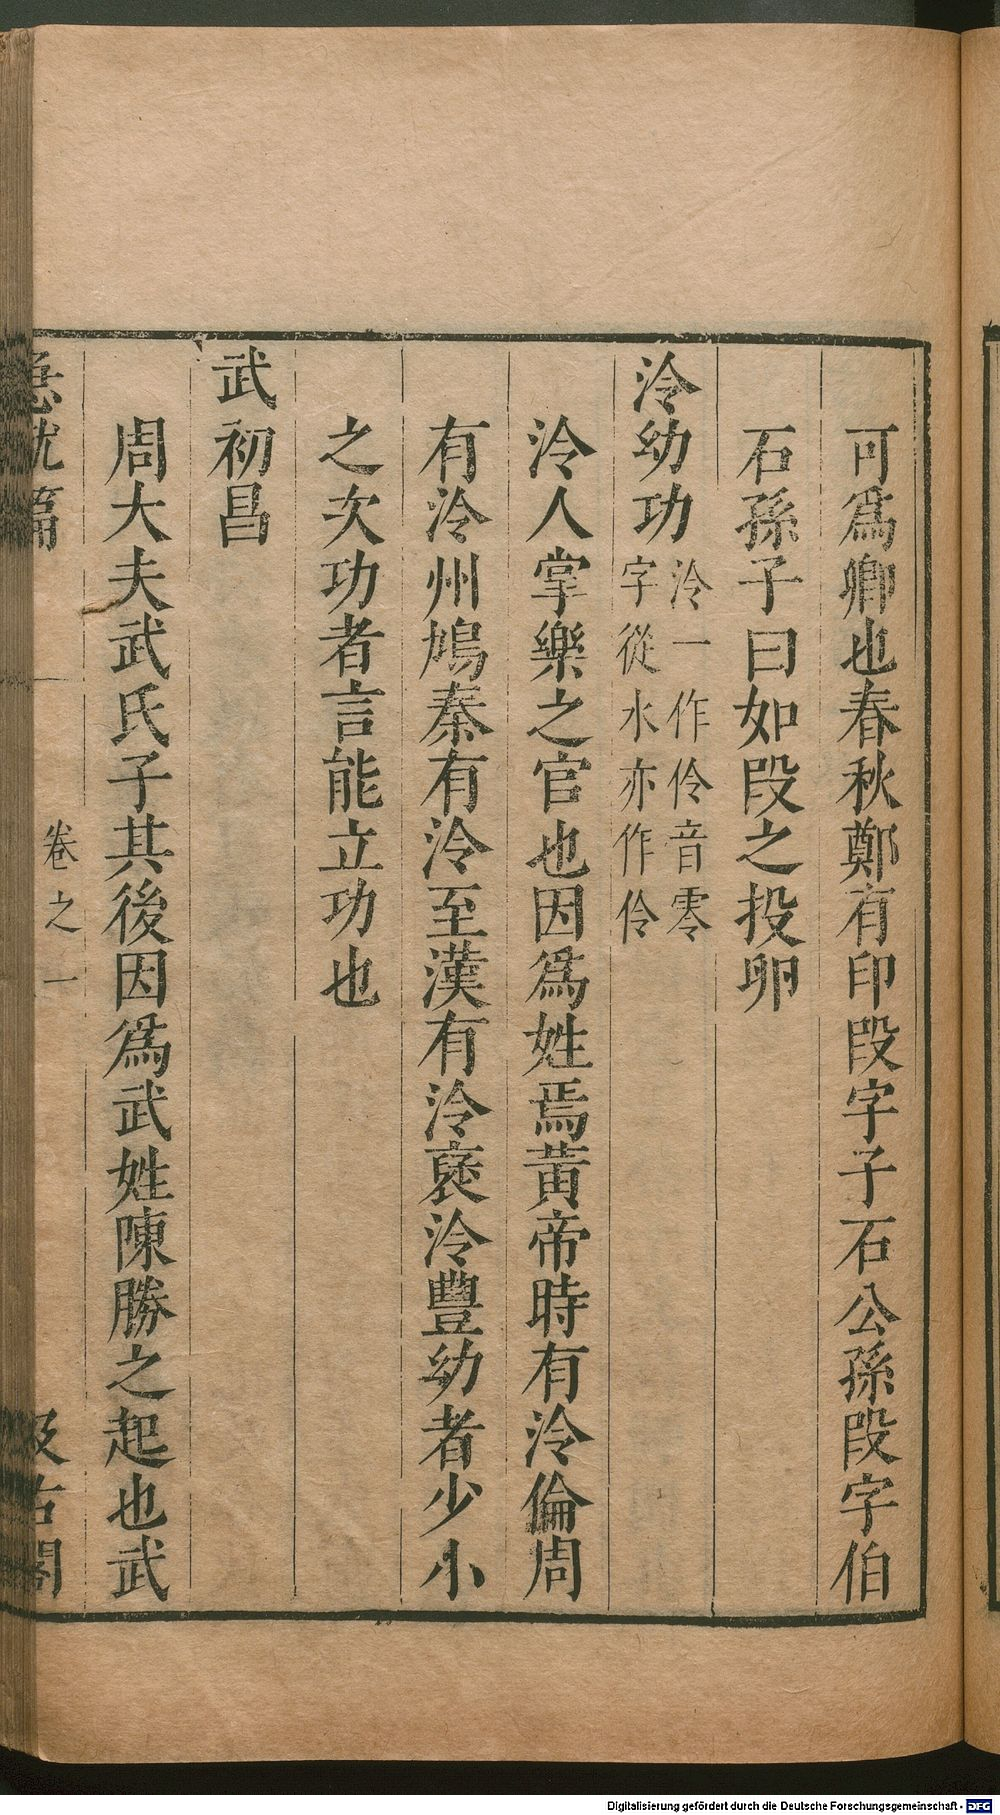 可爲卿也春秋鄭有印段字子石公孫段字伯
石孫子曰如段之投卵
泠幼功泠一作伶音零字從水亦作伶
泠人掌樂之官也因爲姓焉黃帝時有泠倫周
有泠州鳩秦有泠至漢有泠裦泠豐幼者少小
之次功者言能立功也
武初昌
周大夫武氏子其後因爲武姓陳勝之起也武
急就篇 卷之一 汲古閣
Digitalisierung gefördert durch die Deutsche Forschungsgemeinschaft - DFG